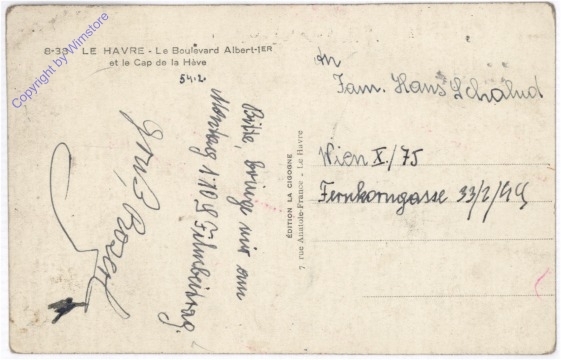 8-33 LE HAVRE - Le Boulevard Albert-1ER
et le Cap de la Hève
54.2.
Bitte, bringe mir am
Montag 110 Filmbeitrag.
Gruß
ÉDITION LA CIGOGNE
7 rue Anatole-France - Le Havre
An
Fam. Hans
Wien X./75
Fernkorngasse 33/2/49
Copyright by Wimstore